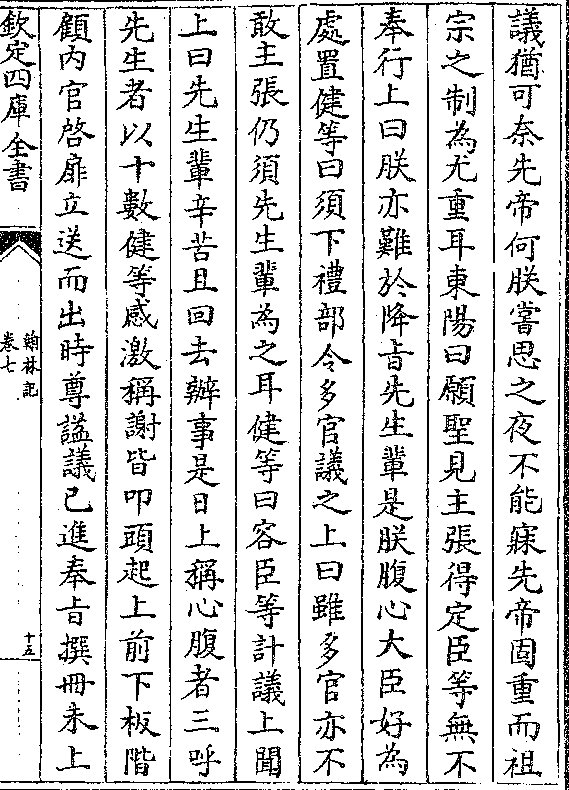 議猶可奈先帝何朕嘗思之夜不能寐先帝固重而祖
宗之制為尤重耳東陽曰願聖見主張得定臣等無不
奉行上曰朕亦難於降㫖先生輩是朕腹心大臣好為
處置健等曰須下禮部令多官議之上曰雖多官亦不
敢主張仍須先生輩為之耳健等曰容臣等計議上聞
上曰先生輩辛苦且回去辦事是日上稱心腹者三呼
先生者以十數健等感激稱謝皆叩頭起上前下板階
顧内官啓扉立送而出時尊諡議已進奉㫖撰冊未上
欽定四庫全書
翰林記
卷七
十五